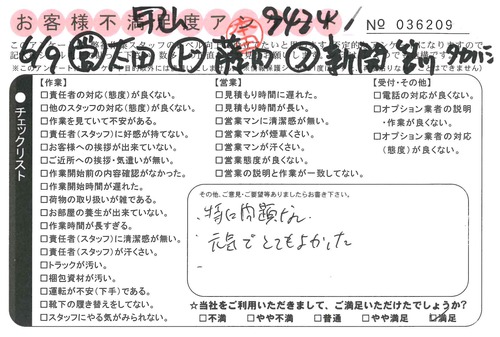 お客様不満足度アン
No 036209
チェックリスト
【作業】
□責任者の対応(態度)が良くない。
□他のスタッフの対応(態度)が良くない。
□作業を見ていて不安がある。
□責任者(スタッフ)に好感が持てない。
□お客様への挨拶が出来ていない。
□ご近所への挨拶・気遣いが無い。
□作業開始前の内容確認がなかった。
□作業開始時間が遅れた。
□荷物の取り扱いが雑である。
□お部屋の養生が出来ていない。
□作業時間が長すぎる。
□責任者(スタッフ)に清潔感が無い。
□責任者(スタッフ)が汗くさい。
□トラックが汚い。
□梱包資材が汚い。
□運転が不安(下手)である。
□靴下の履き替えをしてない。
□スタッフにやる気がみられない。
【営業】
□見積もり時間に遅れた。
□見積もり時間が長い。
□営業マンに清潔感が無い。
□営業マンが煙草くさい。
□営業マンが汗くさい。
□営業態度が良くない。
□営業の説明と作業が一致してない。
【受付・その他】
□電話の対応が良くない。
□オプション業者の説明
・作業が良くない。
□オプション業者の対応
(態度)が良くない。
その他、ご意見・ご要望等ありましたらお書き下さい。
特に問題なし
元気でとてもよかった
☆当社をご利用いただきまして、ご満足いただけたでしょうか?
□不満 □やや不満 □普通 □やや満足 □満足